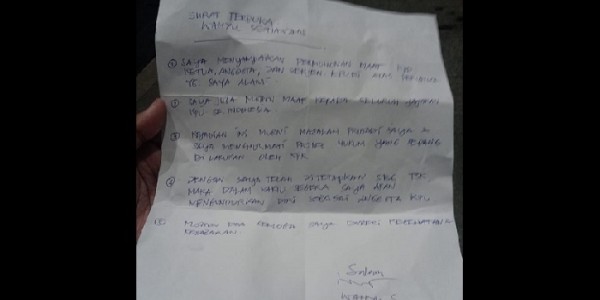 SURAT TERBUKA
WAHYU SETIAWAN
① SAYA MENYAMPAIKAN PERMOHONAN MAAF KPD
KETUA, ANGGOTA, DAN SEKJEN KPU RI ATAS PERISTIWA
YG SAYA ALAMI
② SAYA JUGA MOHON MAAF KEPADA SELURUH JAJARAN
KPU SE-INDONESIA
③ INI MURNI MASALAH PRIBADI SAYA &
SAYA MENGHORMATI PROSES HUKUM YANG SEDANG
DILAKUKAN OLEH KPK
④ DENGAN SAYA TELAH DITETAPKAN SBG TSK
MAKA DALAM WAKTU SEGERA SAYA AKAN
MENGUNDURKAN DIRI SEBAGAI ANGGOTA KPU
⑤ MOHON DOA SAYA DIBERI
KESABARAN.
Salam
WAHYU S